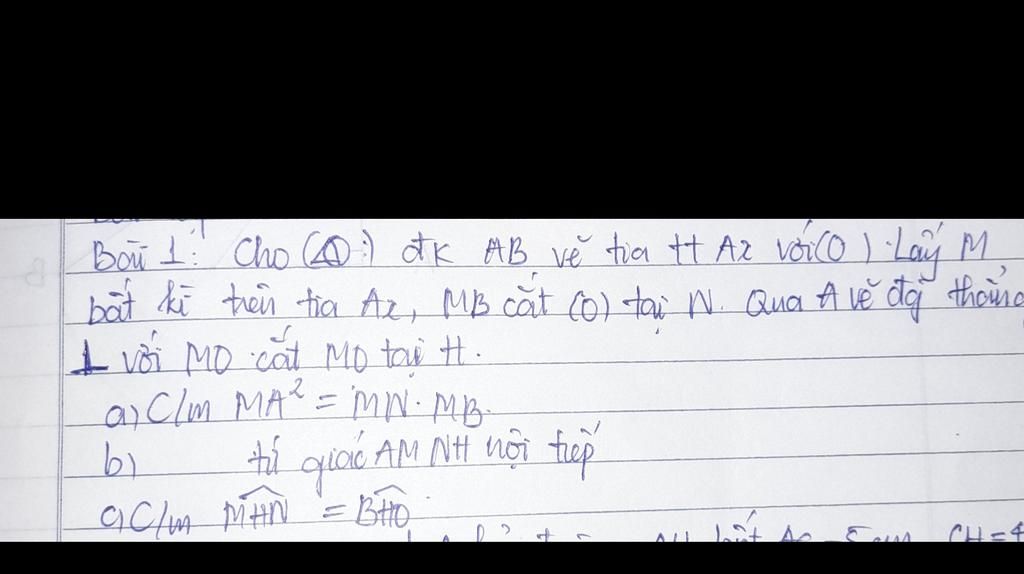 Bài 1: Cho (O) đk AB vẽ tia tt Az với (O). Lấy M
bất kì trên tia Az, MB cắt (O) tại N. Qua A vẽ đg thẳng
⊥ với MO cắt MO tại H.
a) C/m MA² = MN. MB.
b) tứ giác AMNH nội tiếp
c) C/m M̂HN = B̂HO
AH CH = 4